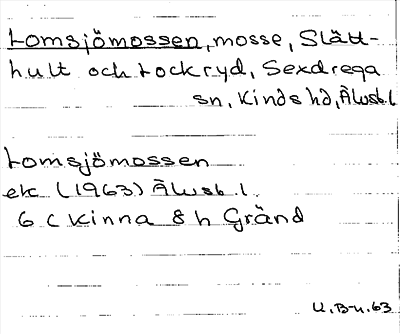 Lomsjömossen, mosse, Slätt-
hult och Lockryd, Sexdrega
sn, Kinds hd, Älvsb. l
Lomsjömossen
ek (1963) Älvsb. l.
6 C Kinna 8 h Gränd
U.B-n.63